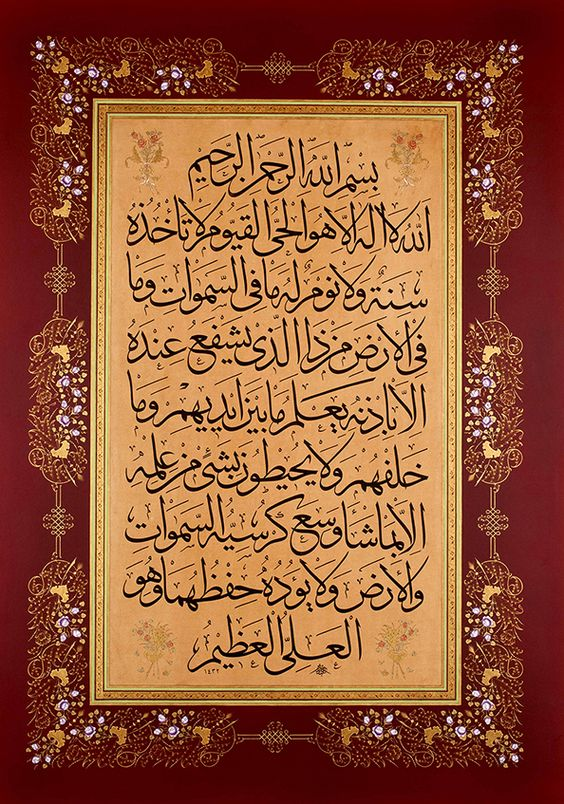 بسم الله الرحمن الرحيم
الله لا اله الا هو الحي القيوم لا تأخذه
سنة ولا نوم له ما في السموات وما
في الارض من ذا الذي يشفع عنده
الا باذنه يعلم ما بين ايديهم وما
خلفهم ولا يحيطون بشئ من علمه
الا بما شاء وسع كرسيه السموات
والارض ولا يوده حفظهما وهو
العلي العظيم
١٤٣٢